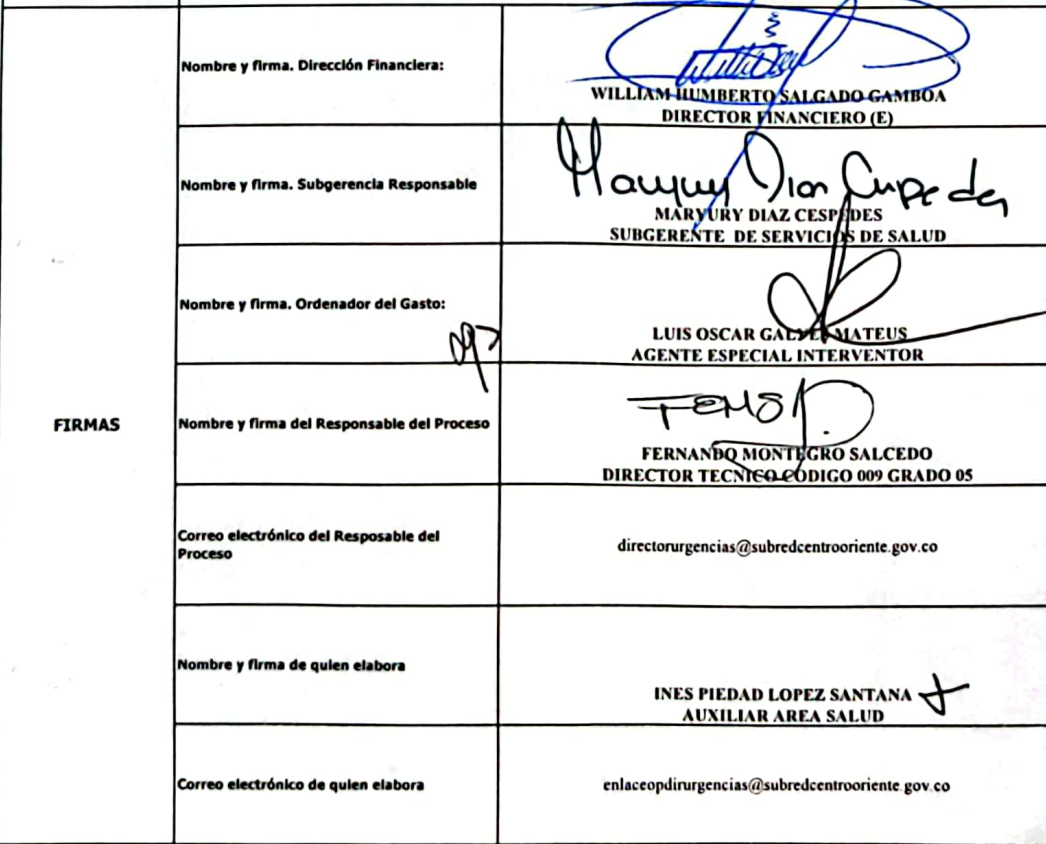 Nombre y firma. Dirección Financiera:
WILLIAM HUMBERTO SALGADO GAMBOA
DIRECTOR FINANCIERO (E)
Nombre y firma. Subgerencia Responsable
MARYURY DIAZ CESPEDES
SUBGERENTE DE SERVICIOS DE SALUD
Nombre y firma. Ordenador del Gasto:
LUIS OSCAR MATEUS
AGENTE ESPECIAL INTERVENTOR
FIRMAS
Nombre y firma del Responsable del Proceso
FERNANDO MONTEGRO SALCEDO
DIRECTOR TECNICO CODIGO 009 GRADO 05
Correo electrónico del Resposable del
Proceso
directorurgencias@subredcentrooriente.gov.co
Nombre y firma de quien elabora
INES PIEDAD LOPEZ SANTANA
AUXILIAR AREA SALUD
Correo electrónico de quien elabora
enlaceopdirurgencias@subredcentrooriente.gov.co